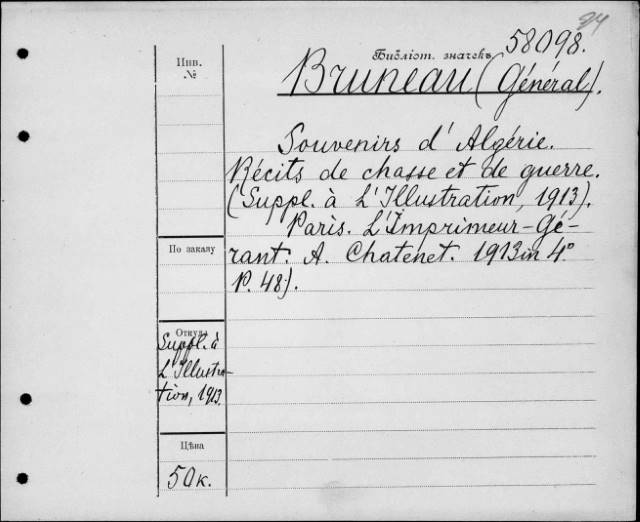 84
58098.
Инв.
№
Библіот. значекъ
Bruneau (Général).
Souvenirs d'Algérie.
Récits de chasse et de guerre.
(Suppl. à L'Illustration, 1913).
Paris. L'Imprimeur-Gé-
rant. A. Chatenet. 1913 in 4°
P. 48).
По заказу
Откуда
Suppl. à
L'Illustra-
tion, 1913.
Цѣна
50 к.